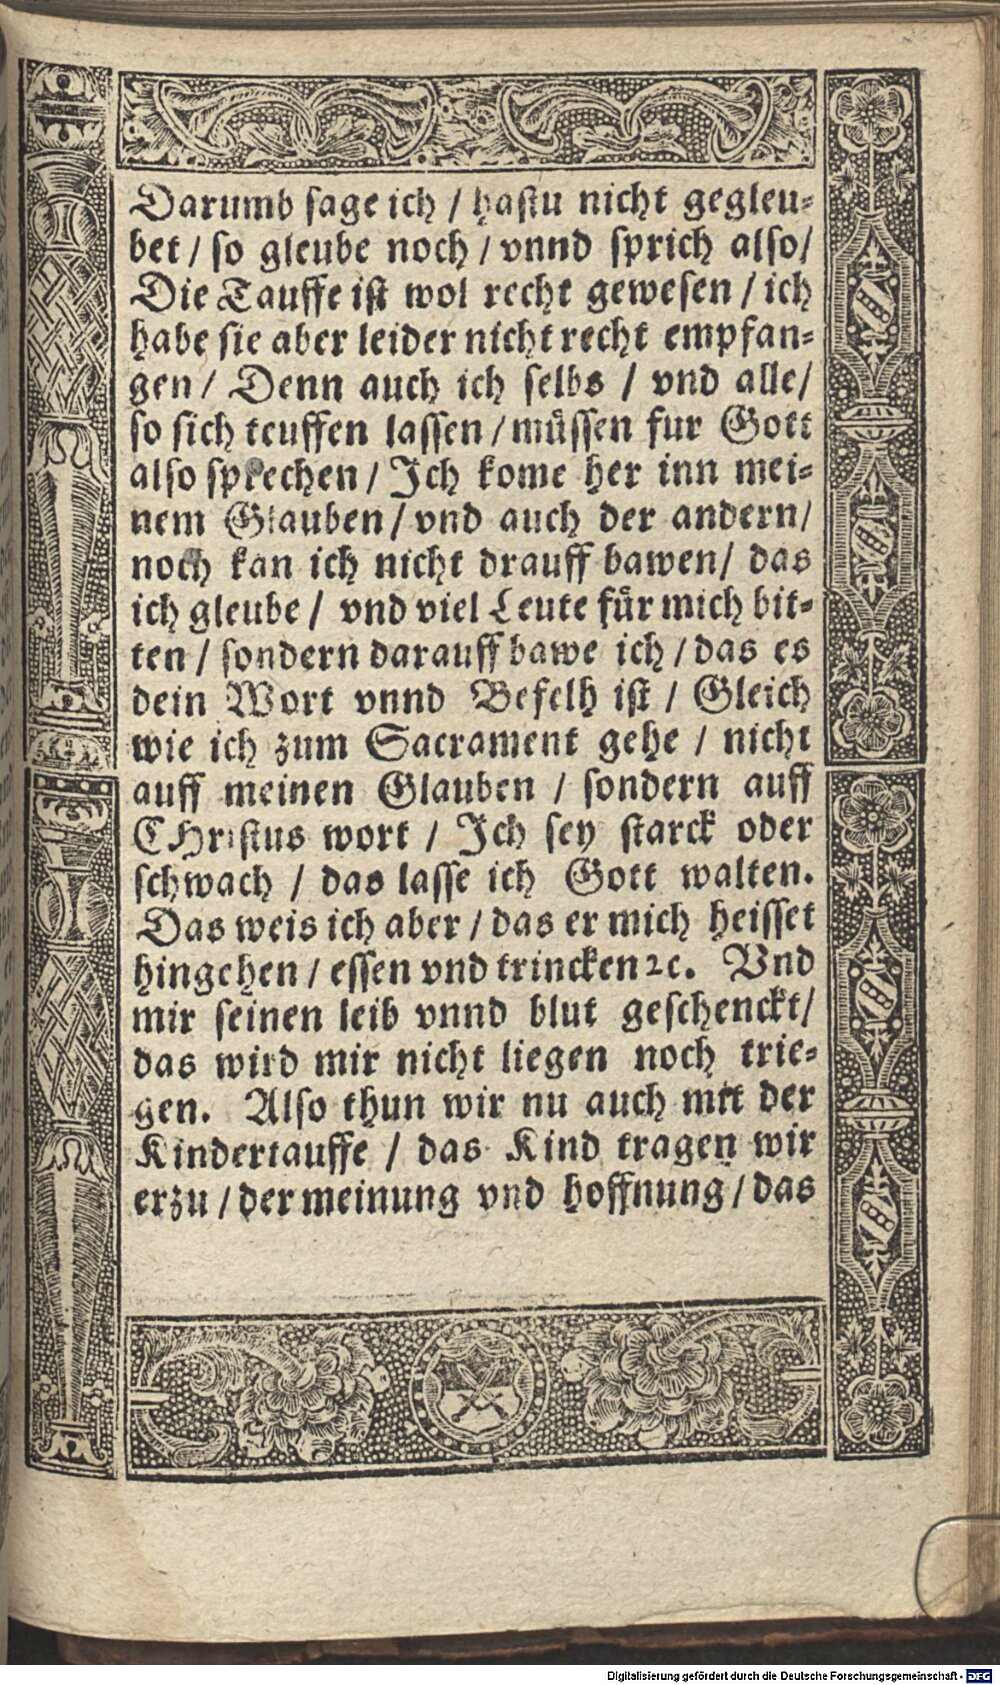 Darumb sage ich / hastu nicht gegleu-
bet / so gleube noch / vnnd sprich also /
Die Tauffe ist wol recht gewesen / ich
habe sie aber leider nicht recht empfan-
gen / Denn auch ich selbs / vnd alle /
so sich teuffen lassen / müssen fur Gott
also sprechen / Ich kome her inn mei-
nem Glauben / vnd auch der andern /
noch kan ich nicht drauff bawen / das
ich gleube / vnd viel Leute für mich bit-
ten / sondern darauff bawe ich / das es
dein Wort vnnd Befelh ist / Gleich
wie ich zum Sacrament gehe / nicht
auff meinen Glauben / sondern auff
CHristus wort / Ich sey starck oder
schwach / das lasse ich Gott walten.
Das weis ich aber / das er mich heisset
hingehen / essen vnd trincken ꝛc. Vnd
mir seinen leib vnnd blut geschenckt /
das wird mir nicht liegen noch trie-
gen. Also thun wir nu auch mit der
Kindertauffe / das Kind tragen wir
erzu / der meinung vnd hoffnung / das
Digitalisierung gefördert durch die Deutsche Forschungsgemeinschaft - DFG